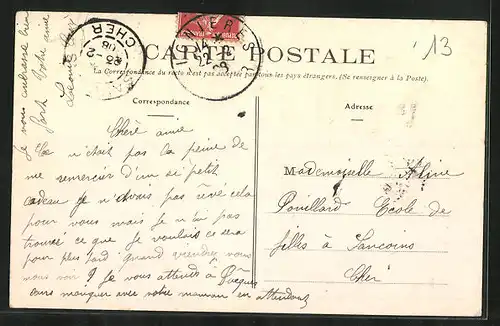 CARTE POSTALE
La Correspondance du recto n'est pas acceptée par tous les pays étrangers. (Se renseigner à la Poste).
13
LIGNIERES
CHER
Correspondance
Adresse
Chère amie
Ce n'était pas la peine de
me remercier d'un si petit
cadeau je n'avais pas rêvé cela
pour vous mais je n'ai pas
trouvé ce que je voulais ce sera
pour plus tard quand viendrez vous
nous voir? Je vous attends à Pâques
sans manquer avec votre maman en attendant
je vous embrasse bien
fort Votre amie
Mademoiselle Aline
Pouillard Ecole de
filles à Sancoins
Cher